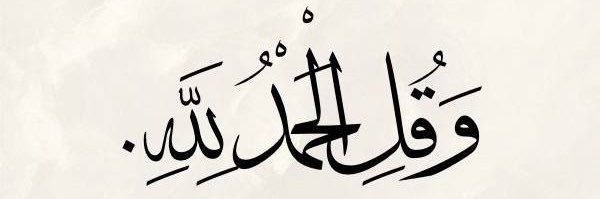 وَقُلِ الْحَمْدُ لِلَّهِ.